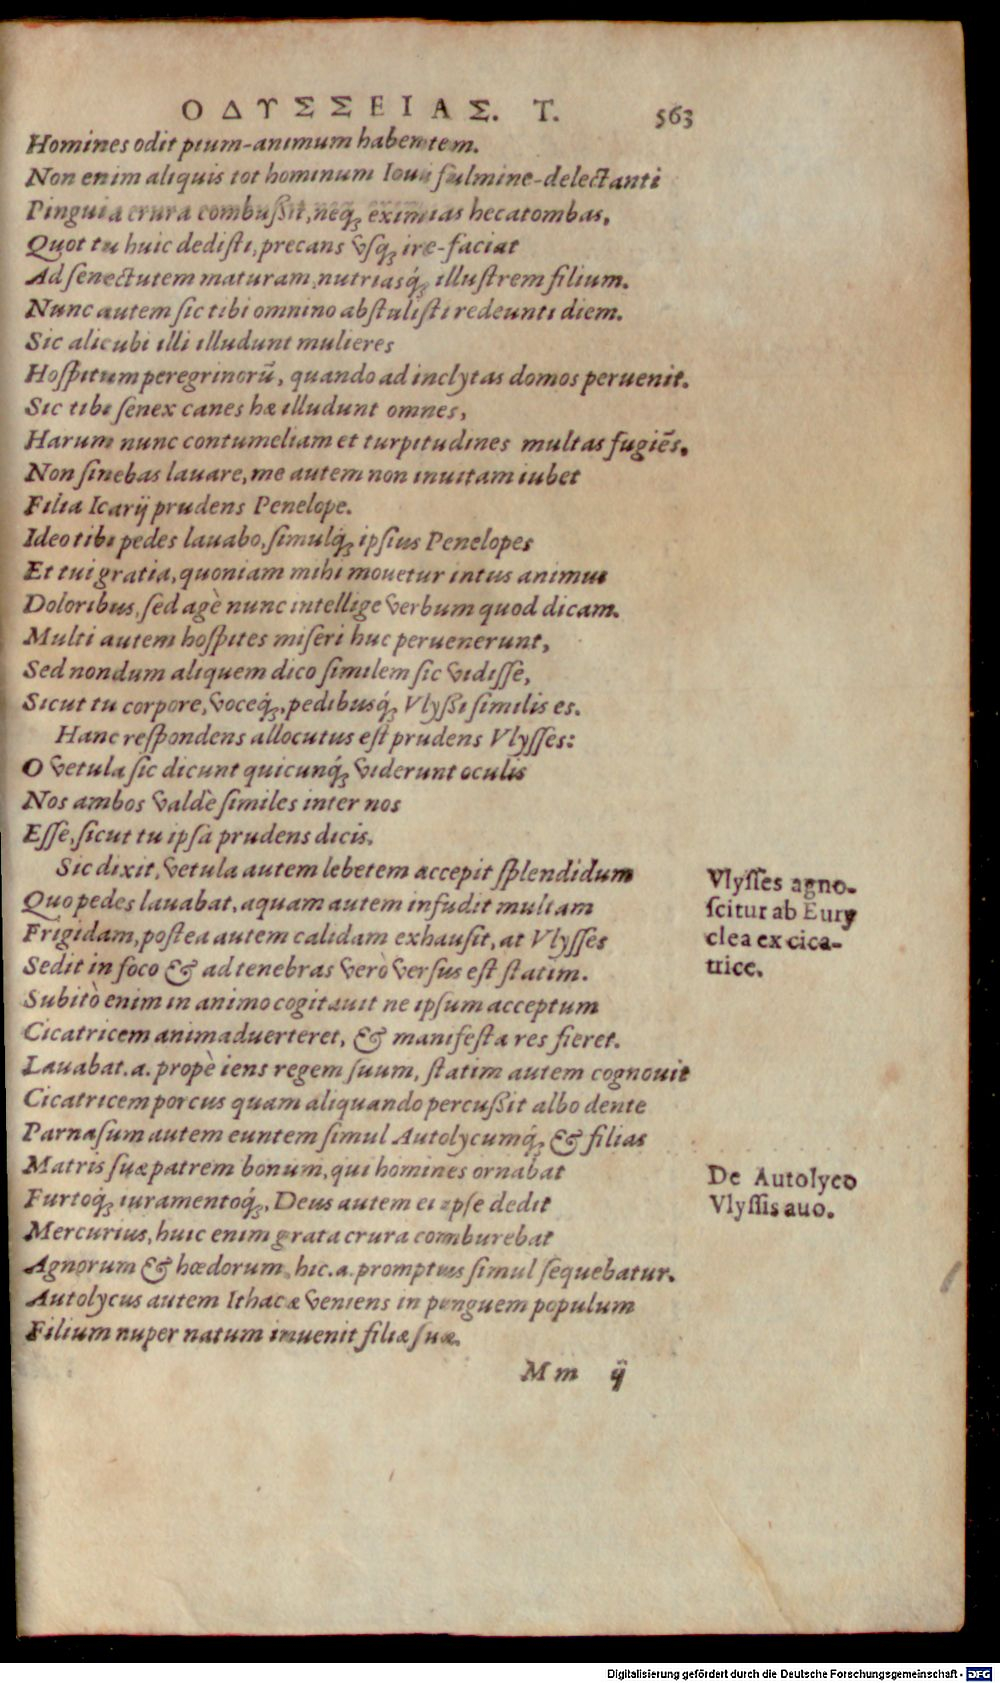 ΟΔΥΣΣΕΙΑΣ. Τ. 563
Homines odit pium-animum habentem.
Non enim aliquis tot hominum Ioui fulmine-delectanti
Pinguia crura combußit, neq́; eximias hecatombas,
Quot tu huic dedisti, precans vsq; ire-faciat
Ad senectutem maturam, nutriasq́; illustrem filium.
Nunc autem sic tibi omnino abstulisti redeunti diem.
Sic alicubi illi illudunt mulieres
Hospitum peregrinorū, quando ad inclytas domos peruenit.
Sic tibi senex canes hæ illudunt omnes,
Harum nunc contumeliam et turpitudines multas fugiēs.
Non sinebas lauare, me autem non inuitam iubet
Filia Icarij prudens Penelope.
Ideo tibi pedes lauabo, simulq́; ipsius Penelopes
Et tui gratia, quoniam mihi mouetur intus animus
Doloribus, sed agè nunc intellige verbum quod dicam.
Multi autem hospites miseri huc peruenerunt,
Sed nondum aliquem dico similem sic vidisse,
Sicut tu corpore, voceq́;, pedibusq́; Vlyßi similis es.
Hanc respondens allocutus est prudens Vlysses:
O vetula sic dicunt quicunq́; viderunt oculis
Nos ambos valdè similes inter nos
Esse, sicut tu ipsa prudens dicis.
Sic dixit, vetula autem lebetem accepit splendidum
Quo pedes lauabat, aquam autem infudit multam
Frigidam, postea autem calidam exhausit, at Vlysses
Sedit in foco & ad tenebras verò versus est statim.
Subitò enim in animo cogitauit ne ipsum acceptum
Cicatricem animaduerteret, & manifesta res fieret.
Lauabat .a. propè iens regem suum, statim autem cognouit
Cicatricem porcus quam aliquando percußit albo dente
Parnasum autem euntem simul Autolycumq́; & filias
Matris suæ patrem bonum, qui homines ornabat
Furtoq́; iuramentoq́;, Deus autem ei ipse dedit
Mercurius, huic enim grata crura comburebat
Agnorum & hœdorum, hic .a. promptus simul sequebatur.
Autolycus autem Ithacæ veniens in pinguem populum
Filium nuper natum inuenit filiæ suæ.
Mm ij
Vlysses agno-
scitur ab Eury
clea ex cica-
trice.
De Autolyco
Vlyssis auo.
Digitalisierung gefördert durch die Deutsche Forschungsgemeinschaft - DFG